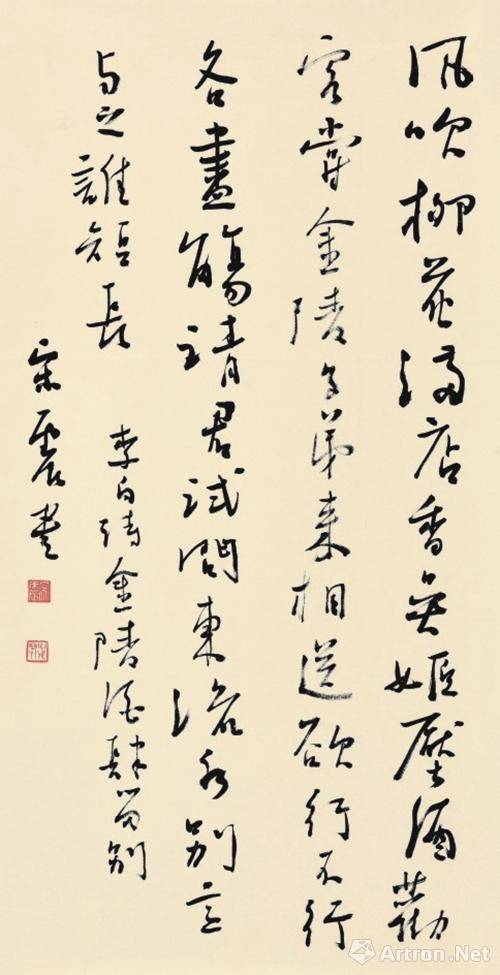 風吹柳花滿店香吳姬壓酒勸
客嘗金陵子弟來相送欲行不行
各盡觴請君試問東流水別意
與之誰短長
李白詩金陵酒肆留別
書
Artron.Net